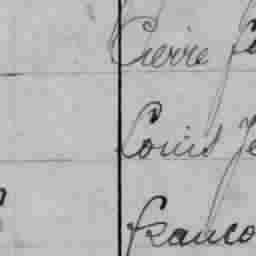 Pierre
Louis Je
franco